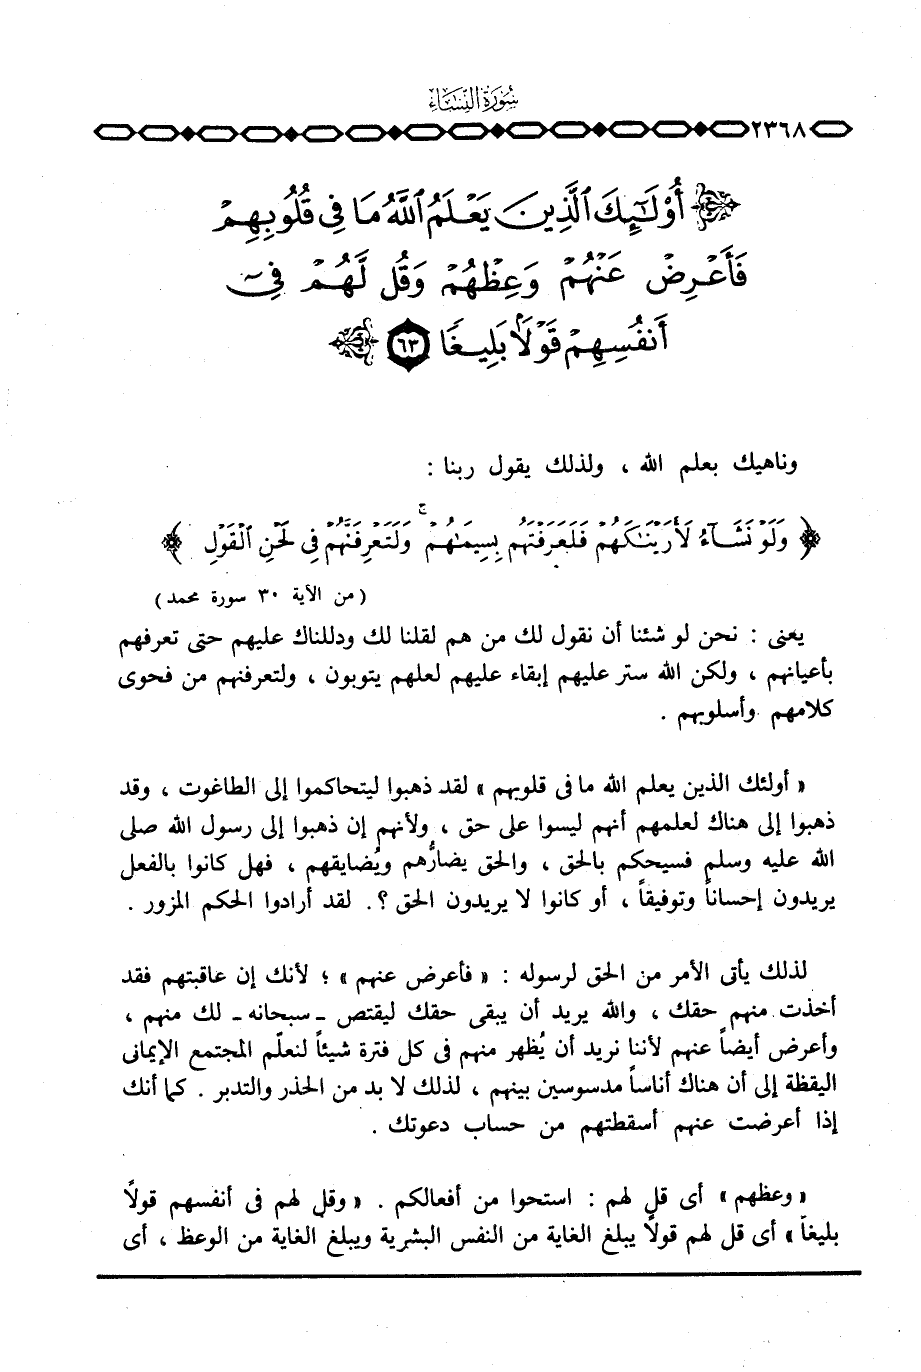 سُورَةُ النِّسَاءِ
٢٣٦٨
أُوْلَٰٓئِكَ ٱلَّذِينَ يَعْلَمُ ٱللَّهُ مَا فِى قُلُوبِهِمْ
فَأَعْرِضْ عَنْهُمْ وَعِظْهُمْ وَقُل لَّهُمْ فِىٓ
أَنفُسِهِمْ قَوْلَۢا بَلِيغًا ٦٣
وناهيك بعلم الله ، ولذلك يقول ربنا :
﴿ وَلَوْ نَشَآءُ لَأَرَيْنَٰكَهُمْ فَلَعَرَفْتَهُم بِسِيمَٰهُمْ ۚ وَلَتَعْرِفَنَّهُمْ فِى لَحْنِ ٱلْقَوْلِ ﴾
( من الآية ٣٠ سورة محمد )
يعنى : نحن لو شئنا أن نقول لك من هم لقلنا لك ودللناك عليهم حتى تعرفهم
بأعيانهم ، ولكن الله ستر عليهم إبقاء عليهم لعلهم يتوبون ، ولتعرفنهم من فحوى
كلامهم وأسلوبهم .
« أولئك الذين يعلم الله ما فى قلوبهم » لقد ذهبوا ليتحاكموا إلى الطاغوت ، وقد
ذهبوا إلى هناك لعلمهم أنهم ليسوا على حق ، ولأنهم إن ذهبوا إلى رسول الله صلى
الله عليه وسلم فسيحكم بالحق ، والحق يضارُّهم ويُضايقهم ، فهل كانوا بالفعل
يريدون إحساناً وتوفيقاً ، أو كانوا لا يريدون الحق ؟. لقد أرادوا الحكم المزور .
لذلك يأتى الأمر من الحق لرسوله : « فأعرض عنهم » ؛ لأنك إن عاقبتهم فقد
أخذت منهم حقك ، والله يريد أن يبقى حقك ليقتص ـ سبحانه ـ لك منهم ،
وأعرض أيضاً عنهم لأننا نريد أن يُظهر منهم فى كل فترة شيئاً لنعلّم المجتمع الإيمانى
اليقظة إلى أن هناك أناساً مدسوسين بينهم ، لذلك لا بد من الحذر والتدبر . كما أنك
إذا أعرضت عنهم أسقطتهم من حساب دعوتك .
« وعظهم » أى قل لهم : استحوا من أفعالكم . « وقل لهم فى أنفسهم قولاً
بليغاً » أى قل لهم قولاً يبلغ الغاية من النفس البشرية ويبلغ الغاية من الوعظ ، أى